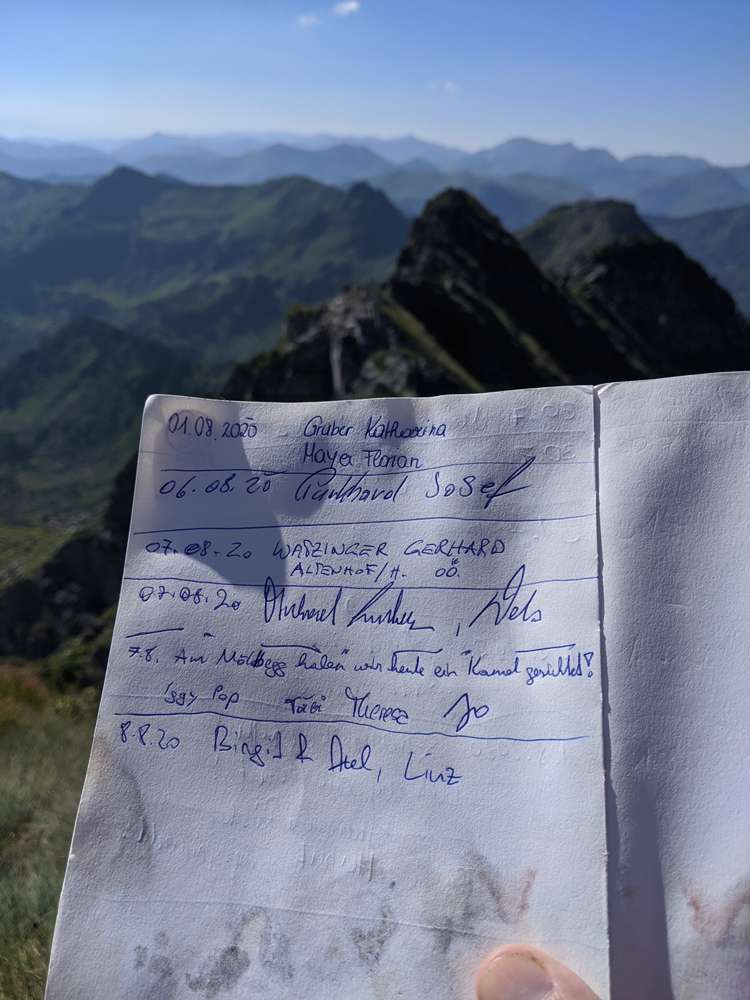 01.08.2020 Gruber Katharina
Mayer Florian
06.08.20 Josef
07.08.20 WATZINGER GERHARD
ALTENHOF/H. OÖ.
07.08.20 Michael , Wels
7.8. Am haben wir heute ein Kamel gesichtet!
Iggy Pop Theresa Jo
8.8.20 Birgit & Axel, Linz